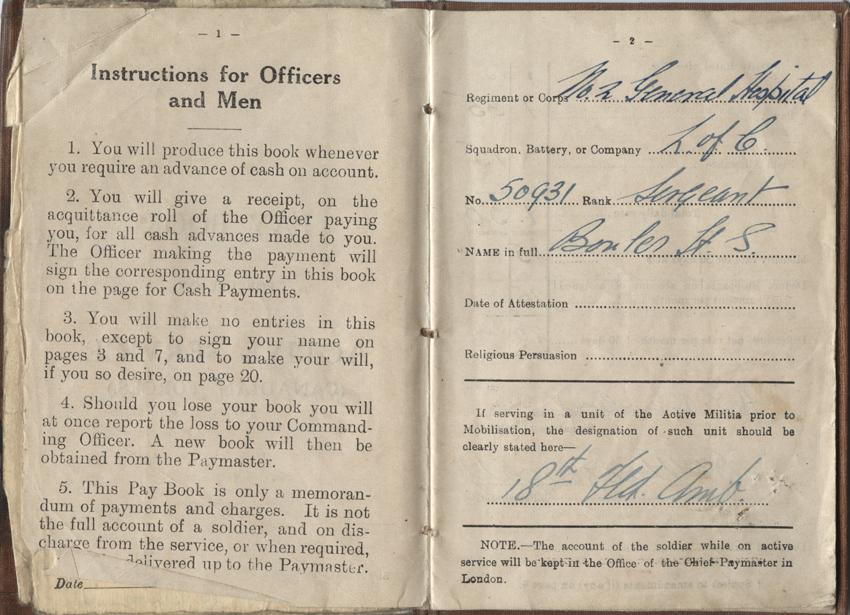 – 1 –
Instructions for Officers
and Men
1. You will produce this book whenever
you require an advance of cash on account.
2. You will give a receipt, on the
acquittance roll of the Officer paying
you, for all cash advances made to you.
The Officer making the payment will
sign the corresponding entry in this book
on the page for Cash Payments.
3. You will make no entries in this
book, except to sign your name on
pages 3 and 7, and to make your will,
if you so desire, on page 20.
4. Should you lose your book you will
at once report the loss to your Command-
ing Officer. A new book will then be
obtained from the Paymaster.
5. This Pay Book is only a memoran-
dum of payments and charges. It is not
the full account of a soldier, and on dis-
charge from the service, or when required,
delivered up to the Paymaster.
Date
– 2 –
Regiment or Corps No. 2 General Hospital
Squadron, Battery, or Company L of C
No. 50931 Rank Sergeant
NAME in full S.
Date of Attestation
Religious Persuasion
If serving in a unit of the Active Militia prior to
Mobilisation, the designation of such unit should be
clearly stated here—
18th Fld. Amb.
NOTE.—The account of the soldier while on active
service will be kept in the Office of the Chief Paymaster in
London.